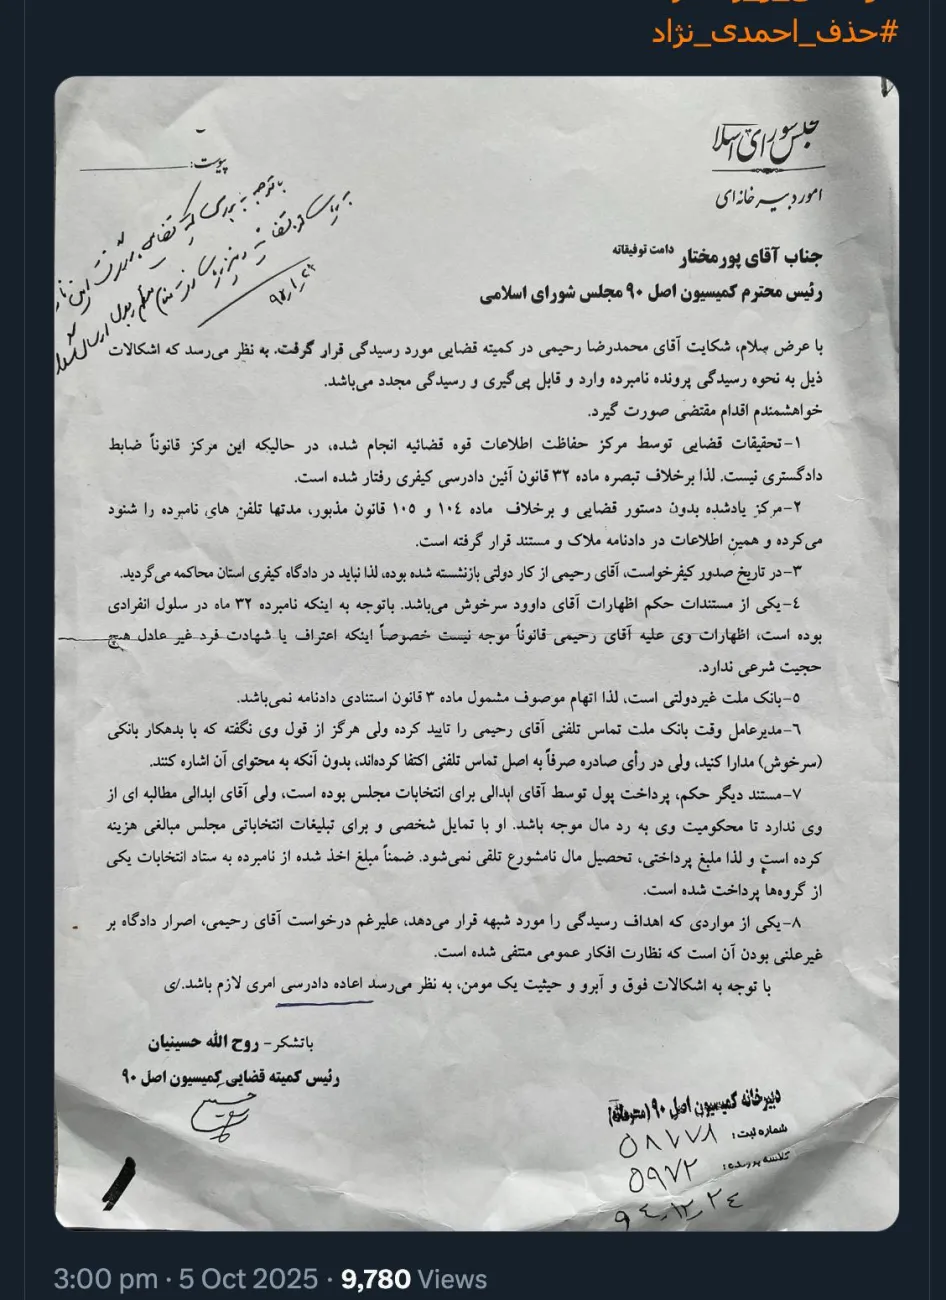 #حذف_احمدی_نژاد
مجلس شورای اسلامی
امور دبیرخانه‌ای
پیوست:
با توجه به بررسی
جناب آقای پورمختار دامت توفیقاته
رئیس محترم کمیسیون اصل ۹۰ مجلس شورای اسلامی
با عرض سلام، شکایت آقای محمدرضا رحیمی در کمیته قضایی مورد رسیدگی قرار گرفت. به نظر می‌رسد که اشکالات
ذیل به نحوه رسیدگی پرونده نامبرده وارد و قابل پی‌گیری و رسیدگی مجدد می‌باشد.
خواهشمندم اقدام مقتضی صورت گیرد.
۱-تحقیقات قضایی توسط مرکز حفاظت اطلاعات قوه قضائیه انجام شده، در حالیکه این مرکز قانوناً ضابط
دادگستری نیست. لذا برخلاف تبصره ماده ۳۲ قانون آئین دادرسی کیفری رفتار شده است.
۲-مرکز یادشده بدون دستور قضایی و برخلاف ماده ۱۰٤ و ۱۰۵ قانون مذبور، مدتها تلفن های نامبرده را شنود
می‌کرده و همین اطلاعات در دادنامه ملاک و مستند قرار گرفته است.
۳-در تاریخ صدور کیفرخواست، آقای رحیمی از کار دولتی بازنشسته شده بوده، لذا نباید در دادگاه کیفری استان محاکمه می‌گردید.
٤-یکی از مستندات حکم اظهارات آقای داوود سرخوش می‌باشد. باتوجه به اینکه نامبرده ۳۲ ماه در سلول انفرادی
بوده است، اظهارات وی علیه آقای رحیمی قانوناً موجه نیست خصوصاً اینکه اعتراف یا شهادت فرد غیر عادل هیچ
حجیت شرعی ندارد.
۵-بانک ملت غیردولتی است، لذا اتهام موصوف مشمول ماده ۳ قانون استنادی دادنامه نمی‌باشد.
٦-مدیرعامل وقت بانک ملت تماس تلفنی آقای رحیمی را تایید کرده ولی هرگز از قول وی نگفته که با بدهکار بانکی
(سرخوش) مدارا کنید، ولی در رأی صادره صرفاً به اصل تماس تلفنی اکتفا کرده‌اند، بدون آنکه به محتوای آن اشاره کنند.
۷-مستند دیگر حکم، پرداخت پول توسط آقای ابدالی برای انتخابات مجلس بوده است، ولی آقای ابدالی مطالبه ای از
وی ندارد تا محکومیت وی به رد مال موجه باشد. او با تمایل شخصی و برای تبلیغات انتخاباتی مجلس مبالغی هزینه
کرده است و لذا ملبغ پرداختی، تحصیل مال نامشورع تلقی نمی‌شود. ضمناً مبلغ اخذ شده از نامبرده به ستاد انتخابات یکی
از گروه‌ها پرداخت شده است.
۸-یکی از مواردی که اهداف رسیدگی را مورد شبهه قرار می‌دهد، علیرغم درخواست آقای رحیمی، اصرار دادگاه بر
غیرعلنی بودن آن است که نظارت افکار عمومی منتفی شده است.
با توجه به اشکالات فوق و آبرو و حیثیت یک مومن، به نظر می‌رسد اعاده دادرسی امری لازم باشد./ی
باتشکر- روح الله حسینیان
رئیس کمیته قضایی کمیسیون اصل ۹۰
دبیرخانه کمیسیون اصل ۹۰ (محرمانه)
شماره ثبت: ۵۸۷۷۸
کلاسه پرونده: ۵۹۷۲
۹٤,۱۲,۲٤
3:00 pm · 5 Oct 2025 · 9,780 Views